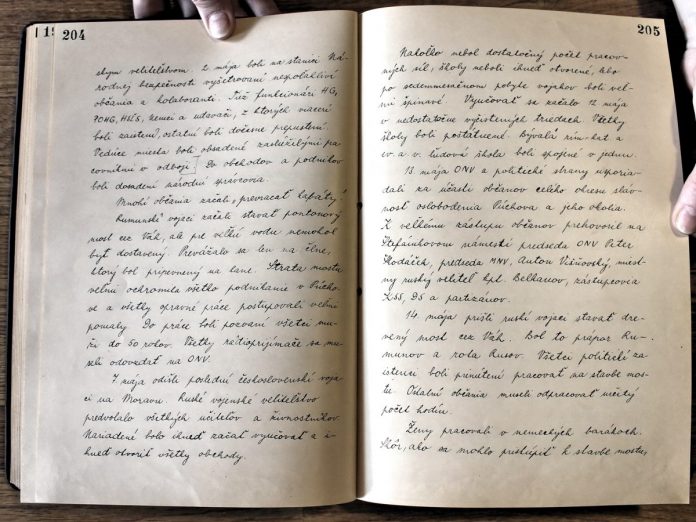 204
skym veliteľstvom. 2. mája boli na stanici Ná-
rodnej bezpečnosti vyšetrovaní nespoľahliví
občania a kolaboranti. Tiež funkcionári HG,
POHG, HSĽS, nemci a udavači, z ktorých viacerí
boli zaistení, ostatní boli dočasne prepustení.
Vedúce miesta boli obsadené zaslúžilými pra-
covníkmi v odboji. Do obchodov a podnikov
boli dosadení národní správcovia.
Mnohí občania začali „prevracať kabáty".
Rumunskí vojaci začali stavať pontonový
most cez Váh, ale pre veľkú vodu nemohol
byť dostavený. Prevážalo sa len na člne,
ktorý bol pripevnený na lane. Strata mostu
veľmi ochromila všetko podnikanie v Púcho-
ve a všetky opravné práce postupovali veľmi
pomaly. Do práce boli pozvaní všetci mu-
ži do 50 rokov. Všetky rádioprijímače sa mu-
seli odovzdať na ONV.
7. mája odišli poslední československí voja-
ci na Moravu. Ruské vojenské veliteľstvo
predvolalo všetkých učiteľov a živnostníkov.
Nariadené bolo ihneď začať vyučovať a i-
hneď otvoriť všetky obchody.
205
Nakoľko nebol dostatočný počet pracov-
ných síl, školy neboli ihneď otvorené, lebo
po sedemmesačnom pobyte vojakov boli veľ-
mi špinavé. Vyučovať sa začalo 12. mája
v nedostatočne vyčistených triedach. Všetky
školy boli poštátnené. Bývalá rím.-kat. a
ev. a. v. ľudová škola boli spojené v jednu.
13. mája ONV a politické strany usporia-
dali za účasti občanov celého okresu sláv-
nosť oslobodenia Púchova a jeho okolia.
K veľkému zástupu občanov prehovoril na
Štefánikovom námestí predseda ONV Peter
Hodáčik, predseda MNV, Anton Višňovský, miest-
ny ruský veliteľ kpt. Belhanov, zástupcovia
KSS, DS a partizánov.
14. mája prišli ruskí vojaci stavať dre-
vený most cez Váh. Bol to prápor Ru-
munov a rota Rusov. Všetci politickí za-
istenci boli prinútení pracovať na stavbe mos-
tu. Ostatní občania museli odpracovať určitý
počet hodín.
Ženy pracovali v nemeckých barákoch.
Skôr, ako sa mohlo pristúpiť k stavbe mostu,